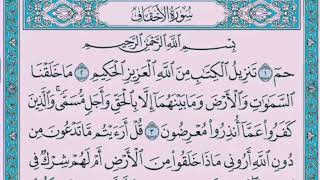 سُورَةُ الأَحْقَافِ
بِسْمِ اللَّهِ الرَّحْمَٰنِ الرَّحِيمِ
حمٓ ۝١ تَنزِيلُ ٱلْكِتَٰبِ مِنَ ٱللَّهِ ٱلْعَزِيزِ ٱلْحَكِيمِ ۝٢ مَا خَلَقْنَا
ٱلسَّمَٰوَٰتِ وَٱلْأَرْضَ وَمَا بَيْنَهُمَآ إِلَّا بِٱلْحَقِّ وَأَجَلٍ مُّسَمًّى ۚ وَٱلَّذِينَ
كَفَرُوا۟ عَمَّآ أُنذِرُوا۟ مُعْرِضُونَ ۝٣ قُلْ أَرَءَيْتُم مَّا تَدْعُونَ مِن
دُونِ ٱللَّهِ أَرُونِى مَاذَا خَلَقُوا۟ مِنَ ٱلْأَرْضِ أَمْ لَهُمْ شِرْكٌ فِى